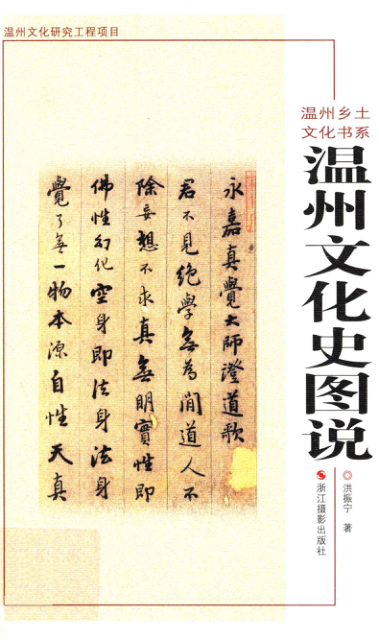 温州文化研究工程项目
温州乡土
文化书系
温州文化史图说
◎洪振宁 著
浙江摄影出版社
永嘉真覺大師證道歌
君不見絶學無為閒道人不
除妄想不求真無明實性即
佛性幻化空身即法身法身
覺了無一物本源自性天真